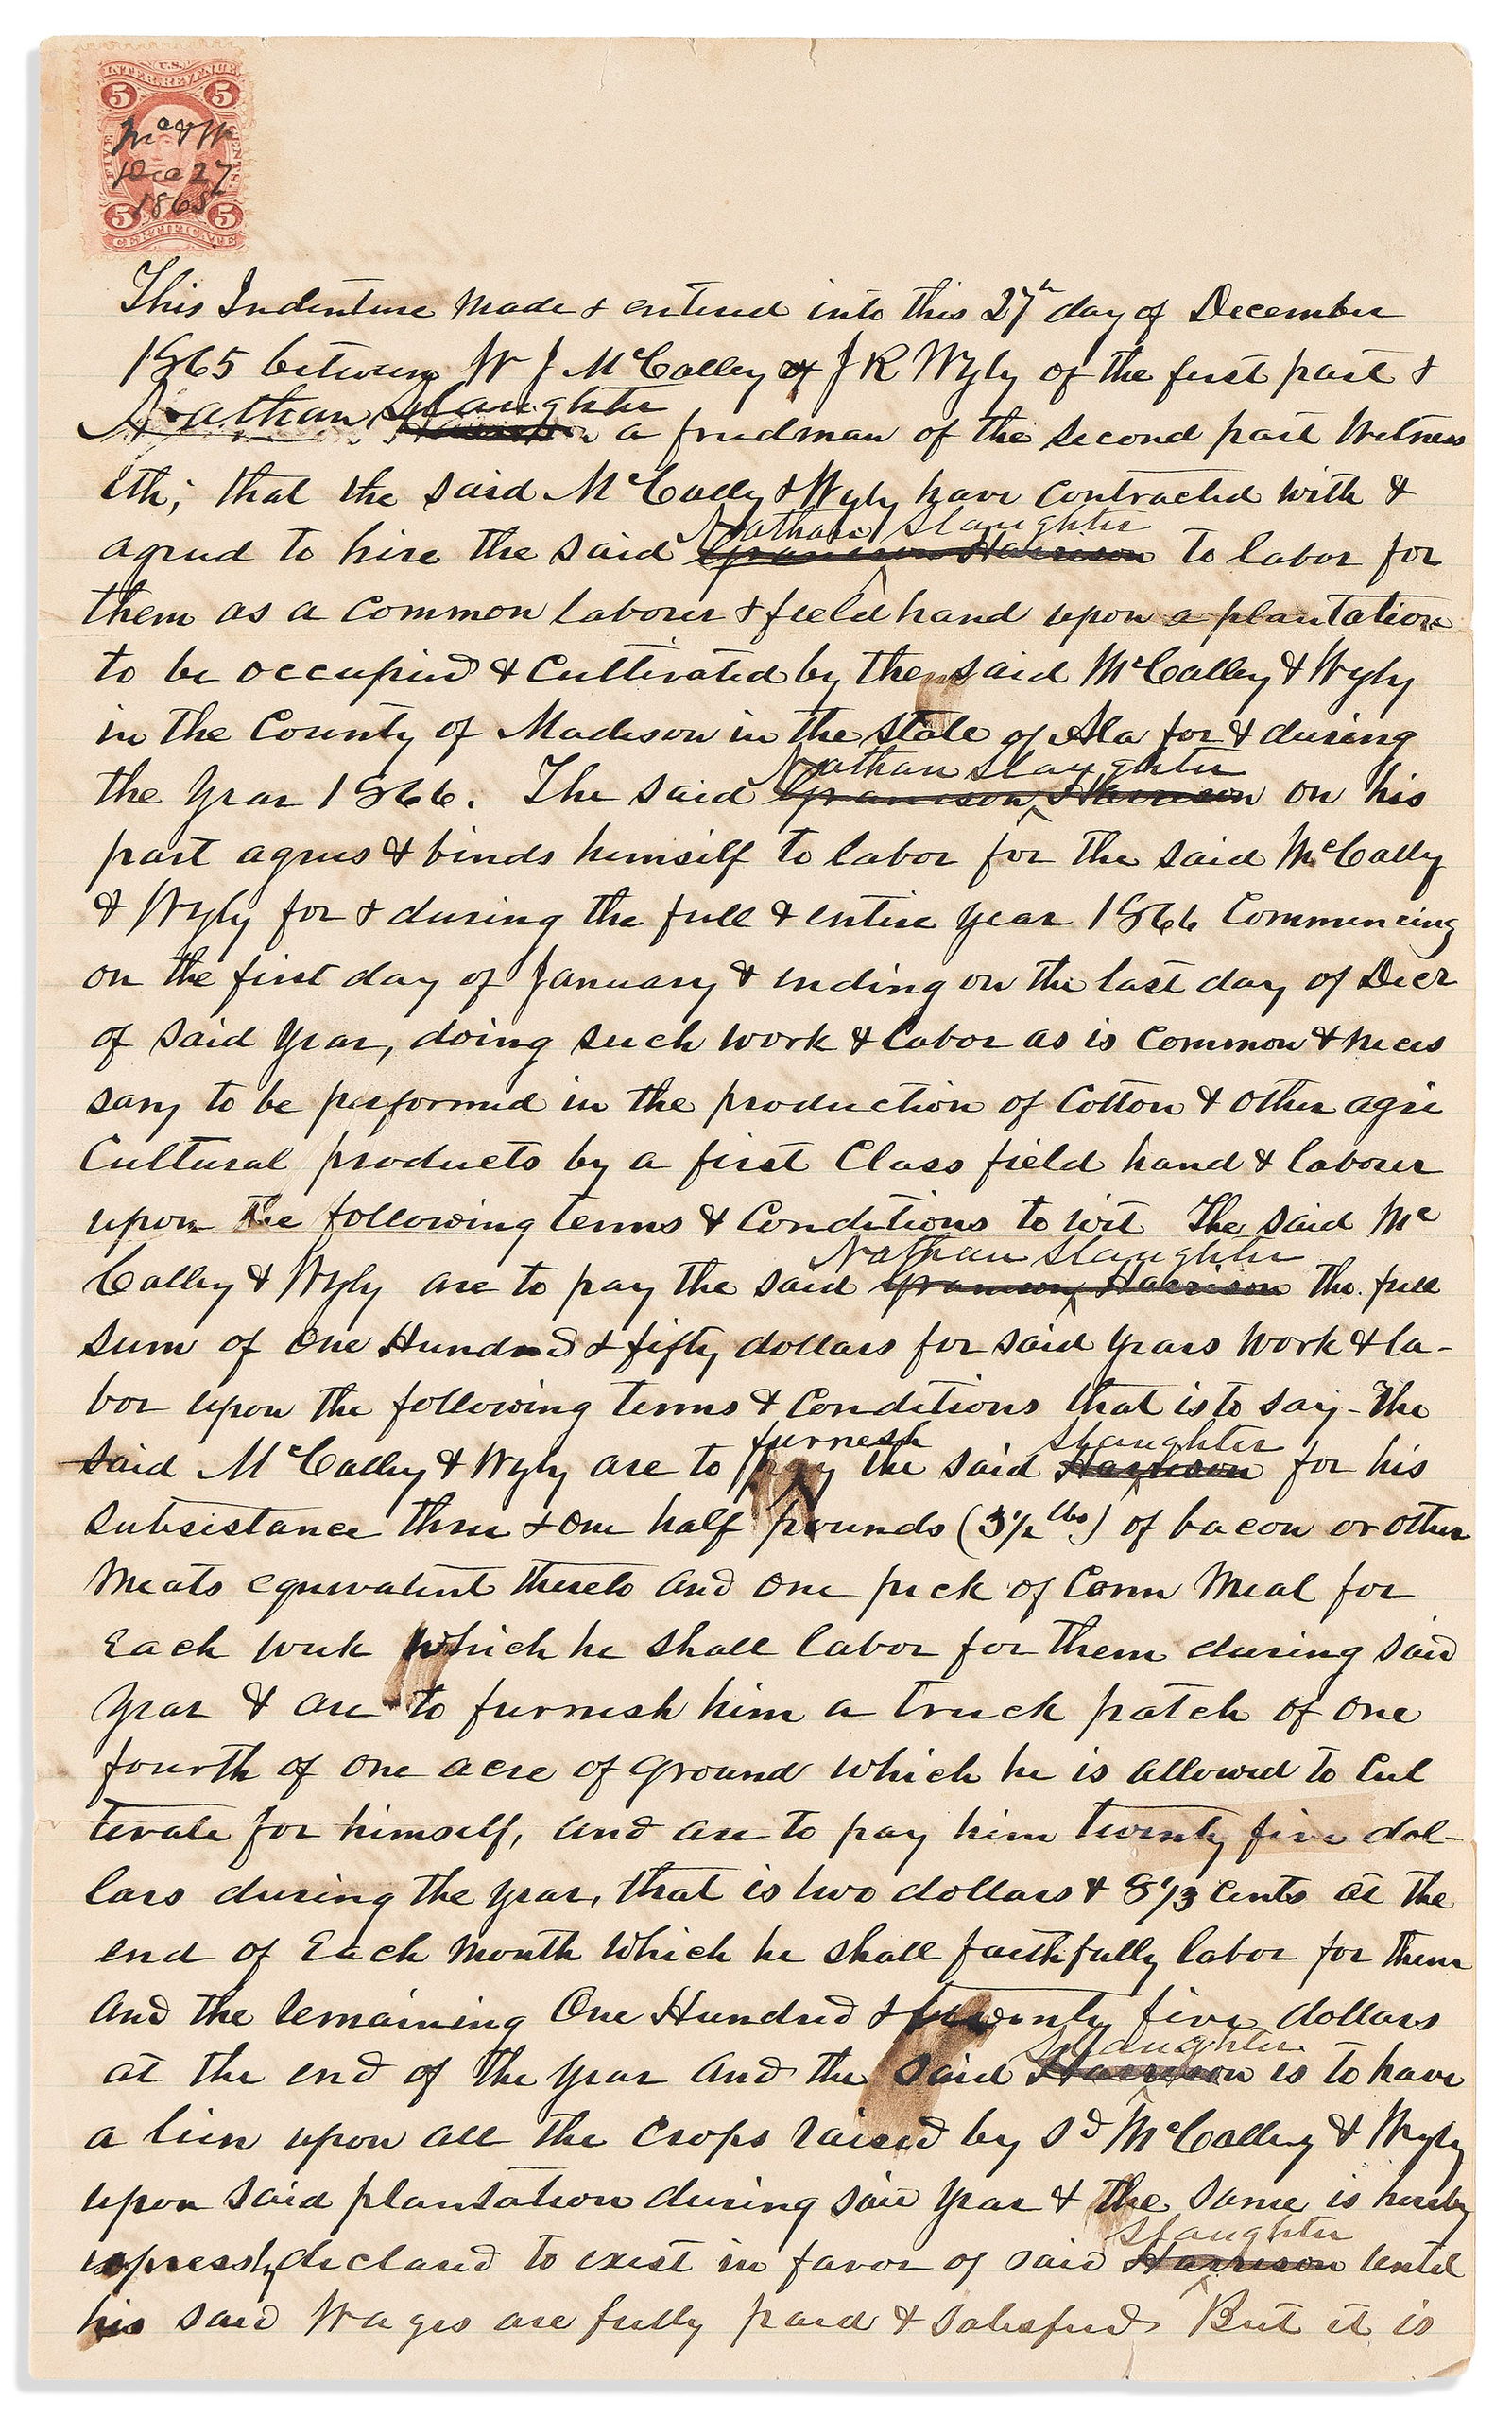 U.S.
INTER. REVENUE
5 5
FIVE CENTS.
McC & W
Dec 27
1865
5 5
CERTIFICATE
This Indenture made & entered into this 27th day of December
1865 between W J McCalley & J R Wyly of the first part &
Nathan Slaughter
Harrison a freedman of the second part Witness
eth; that the said McCalley & Wyly have contracted with &
Nathan Slaughter
agreed to hire the said Granison Harrison to labor for
them as a common laborer & field hand upon a plantation
to be occupied & cultivated by the said McCalley & Wyly
in the County of Madison in the state of Ala for & during
Nathan Slaughter
the year 1866. The said Granison Harrison on his
part agrees & binds himself to labor for the said McCalley
& Wyly for & during the full & entire year 1866 Commencing
on the first day of January & ending on the last day of Decr
of said year, doing such work & labor as is common & neces
sary to be performed in the production of Cotton & other agri
cultural products by a first Class field hand & laborer
upon the following terms & Conditions to wit The said Mc
Nathan Slaughter
Calley & Wyly are to pay the said Granison Harrison the full
sum of One Hundred & fifty dollars for said years work & la-
bor upon the following terms & Conditions that is to say - The
furnish Slaughter
said McCalley & Wyly are to pay the said Harrison for his
subsistance three & one half pounds (3 1/2 lbs) of bacon or other
meats equivalent thereto and one peck of Corn Meal for
Each week which he shall labor for them during said
year & are to furnish him a truck patch of one
fourth of one acre of ground which he is allowed to Cul
tivate for himself, and are to pay him twenty five dol-
lars during the year, that is two dollars & 8 1/3 cents at the
end of Each month which he shall faithfully labor for them
and the remaining One Hundred & twenty five dollars
Slaughter
at the end of the year and the said Harrison is to have
a lien upon all the crops raised by sd McCalley & Wyly
upon said plantation during said year & the same is hereby
Slaughter
expressly declared to exist in favor of said Harrison until
his said wages are fully paid & satisfied But it is